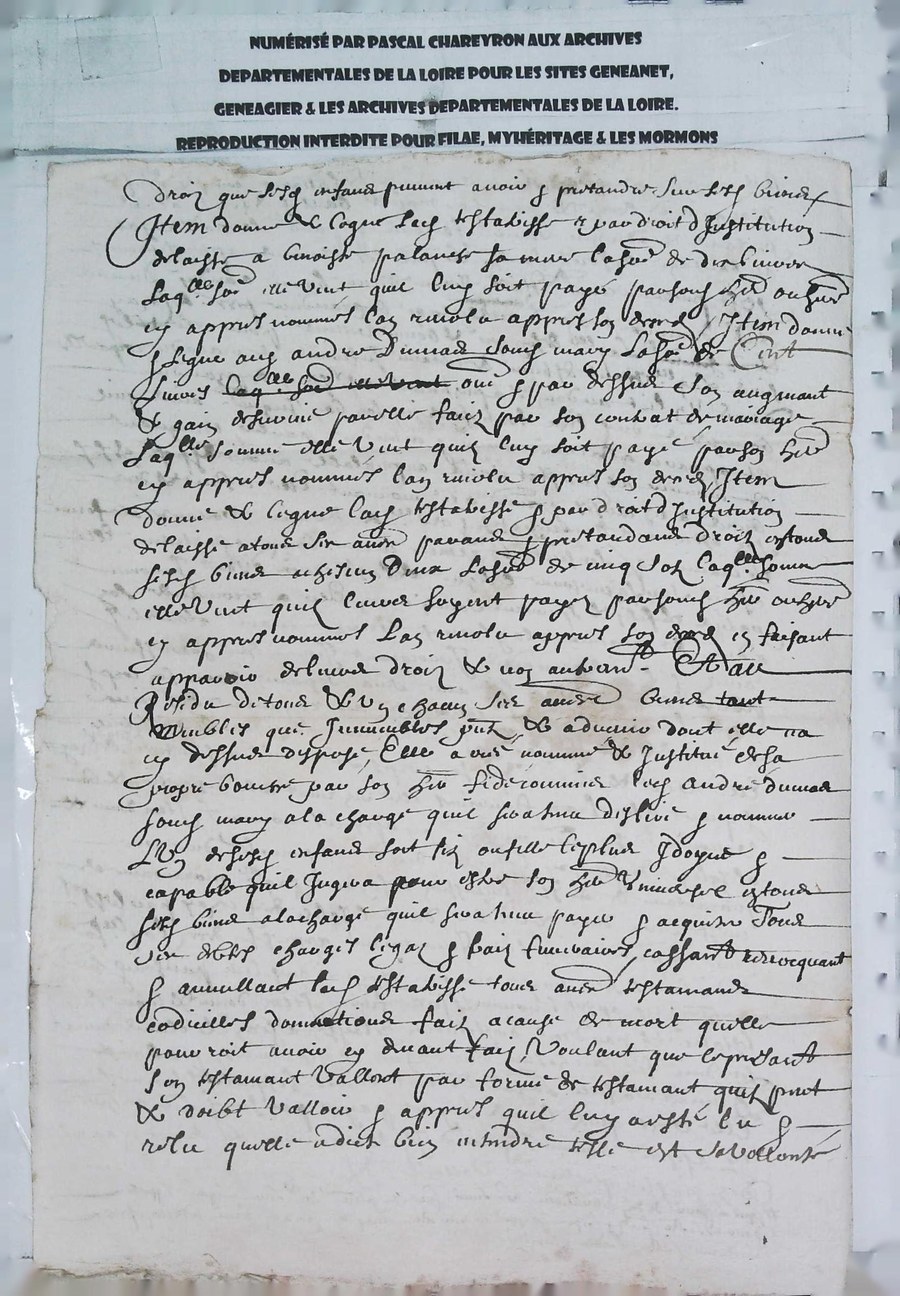 NUMÉRISÉ PAR PASCAL CHAREYRON AUX ARCHIVES
DEPARTEMENTALES DE LA LOIRE POUR LES SITES GENEANET,
GENEAGIER & LES ARCHIVES DEPARTEMENTALES DE LA LOIRE.
REPRODUCTION INTERDITE POUR FILAE, MYHÉRITAGE & LES MORMONS
droiz que sesd enfans peuvent avoir & pretandre sur sesd biens
Item donne & legue lad testatrisse & par droit d'Institution
delaisse a benoiste palanche sa mere la so^e de dix livres
Laq^lle so^e elle veut quil luy soit payé par sond her^er
cy appres nommé l'an revolu appres son deces, Item donne
& legue aud andre Dumas sond mary La so^e de Cent
Livres laq^lle so^e elle veut & par dessus son augmant
& gain de survie par elle faiz par son contrat de mariage
Laq^lle somme elle veut quil luy soit payé par son her^er
cy appres nommé l'an revolu appres son deces, Item
donne & legue lad testatrisse & par droit d'Institution
delaisse a tous ses aues parans & pretandans droiz en tous
sesd biens a chescung Deux La so^e de cinq solz laq^lle somme
elle veut quil leurs soyent payez par sond her^er
cy appres nommé L'an revolu appres son deces en faisant
apparoir de leurs droiz & non autrem^t Et au
Residu de tous & un chacun ses aues biens tant
Meubles que Immeubles pnt & advenir dont elle na
cy dessus disposé, Elle a cree nomme & Institué de sa
propre bouche par son her^er fideicommis led andré dumas
sond mary a la charge quil sera tenu deslire & nommer
L'Un de sesd enfans soit filz ou fille le plus Idoyne &
capable quil Jugera pour estre son her^er Universel en tous
sesd biens a la charge quil sera tenu payer & acquiter Tous
ses debtes charges legaz & fraiz funeraires, cassant revocquant
& annullant lad testatrisse tous aues testamans
codicilles donnations faiz a cause de mort quelle
pourroit avoir cy devant faiz, Voulant que le present
son testamant Vallent par forme de testamant quil peut
& doibt Valloir & appres quil luy a esté lu &
relu quelle a dict bien entendre telle est sa vollonté